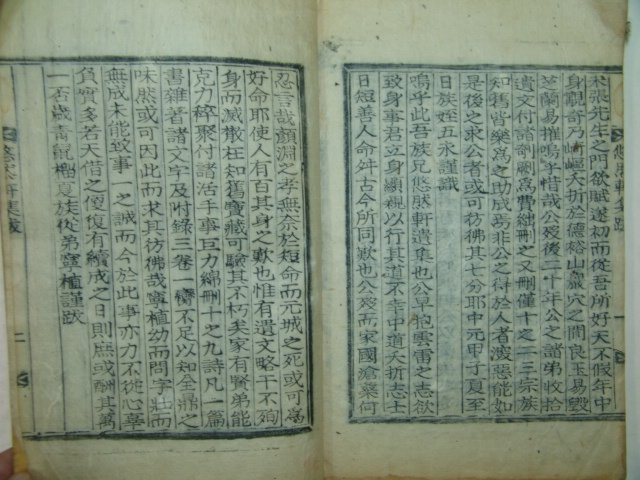 米張先生之門欲賦遂初而從吾所好天不假年中
身視許乃崎嶇夭折於德裕山巖穴之間良玉易毀
芝蘭易摧嗚呼惜哉公歿後二十年公之諸弟收拾
遺文付諸剞劂爲費絀刪之又刪僅十之一二宗族
知舊皆樂爲之助成焉非公之得於人者深惡能如
是後之求公者或可彷彿其七分耶中元甲子夏至
日族姪五永謹識
嗚乎此吾族兄悠然軒遺集也公早抱雲霄之志欲
致身事君立身顯親以行其道不幸中道夭折志士
日短善人命舛古今所同歎也公歿而家國滄桑何
忍言哉顏淵之孝無奈於短命而元城之死或可爲
好命耶使人有百其身之歎也惟有遺文略干不殉
身而滅散在知舊寶藏可驗其不朽矣家有賢弟能
克力稡聚付諸活手事巨力綿刪十之九詩凡一篇
書雜著諸文字及附錄三卷一臠不足以知全鼎之
味然或可因此而求其彷彿哉寗植幼而問字壯而
無成未能效事一之誠而今於此事亦力不從心辜
負實多若天借之便復有續成之日則庶或酬其萬
一否歲靑鼠榴夏族從弟寗植謹跋
悠然軒集跋
二
悠然軒集跋
一